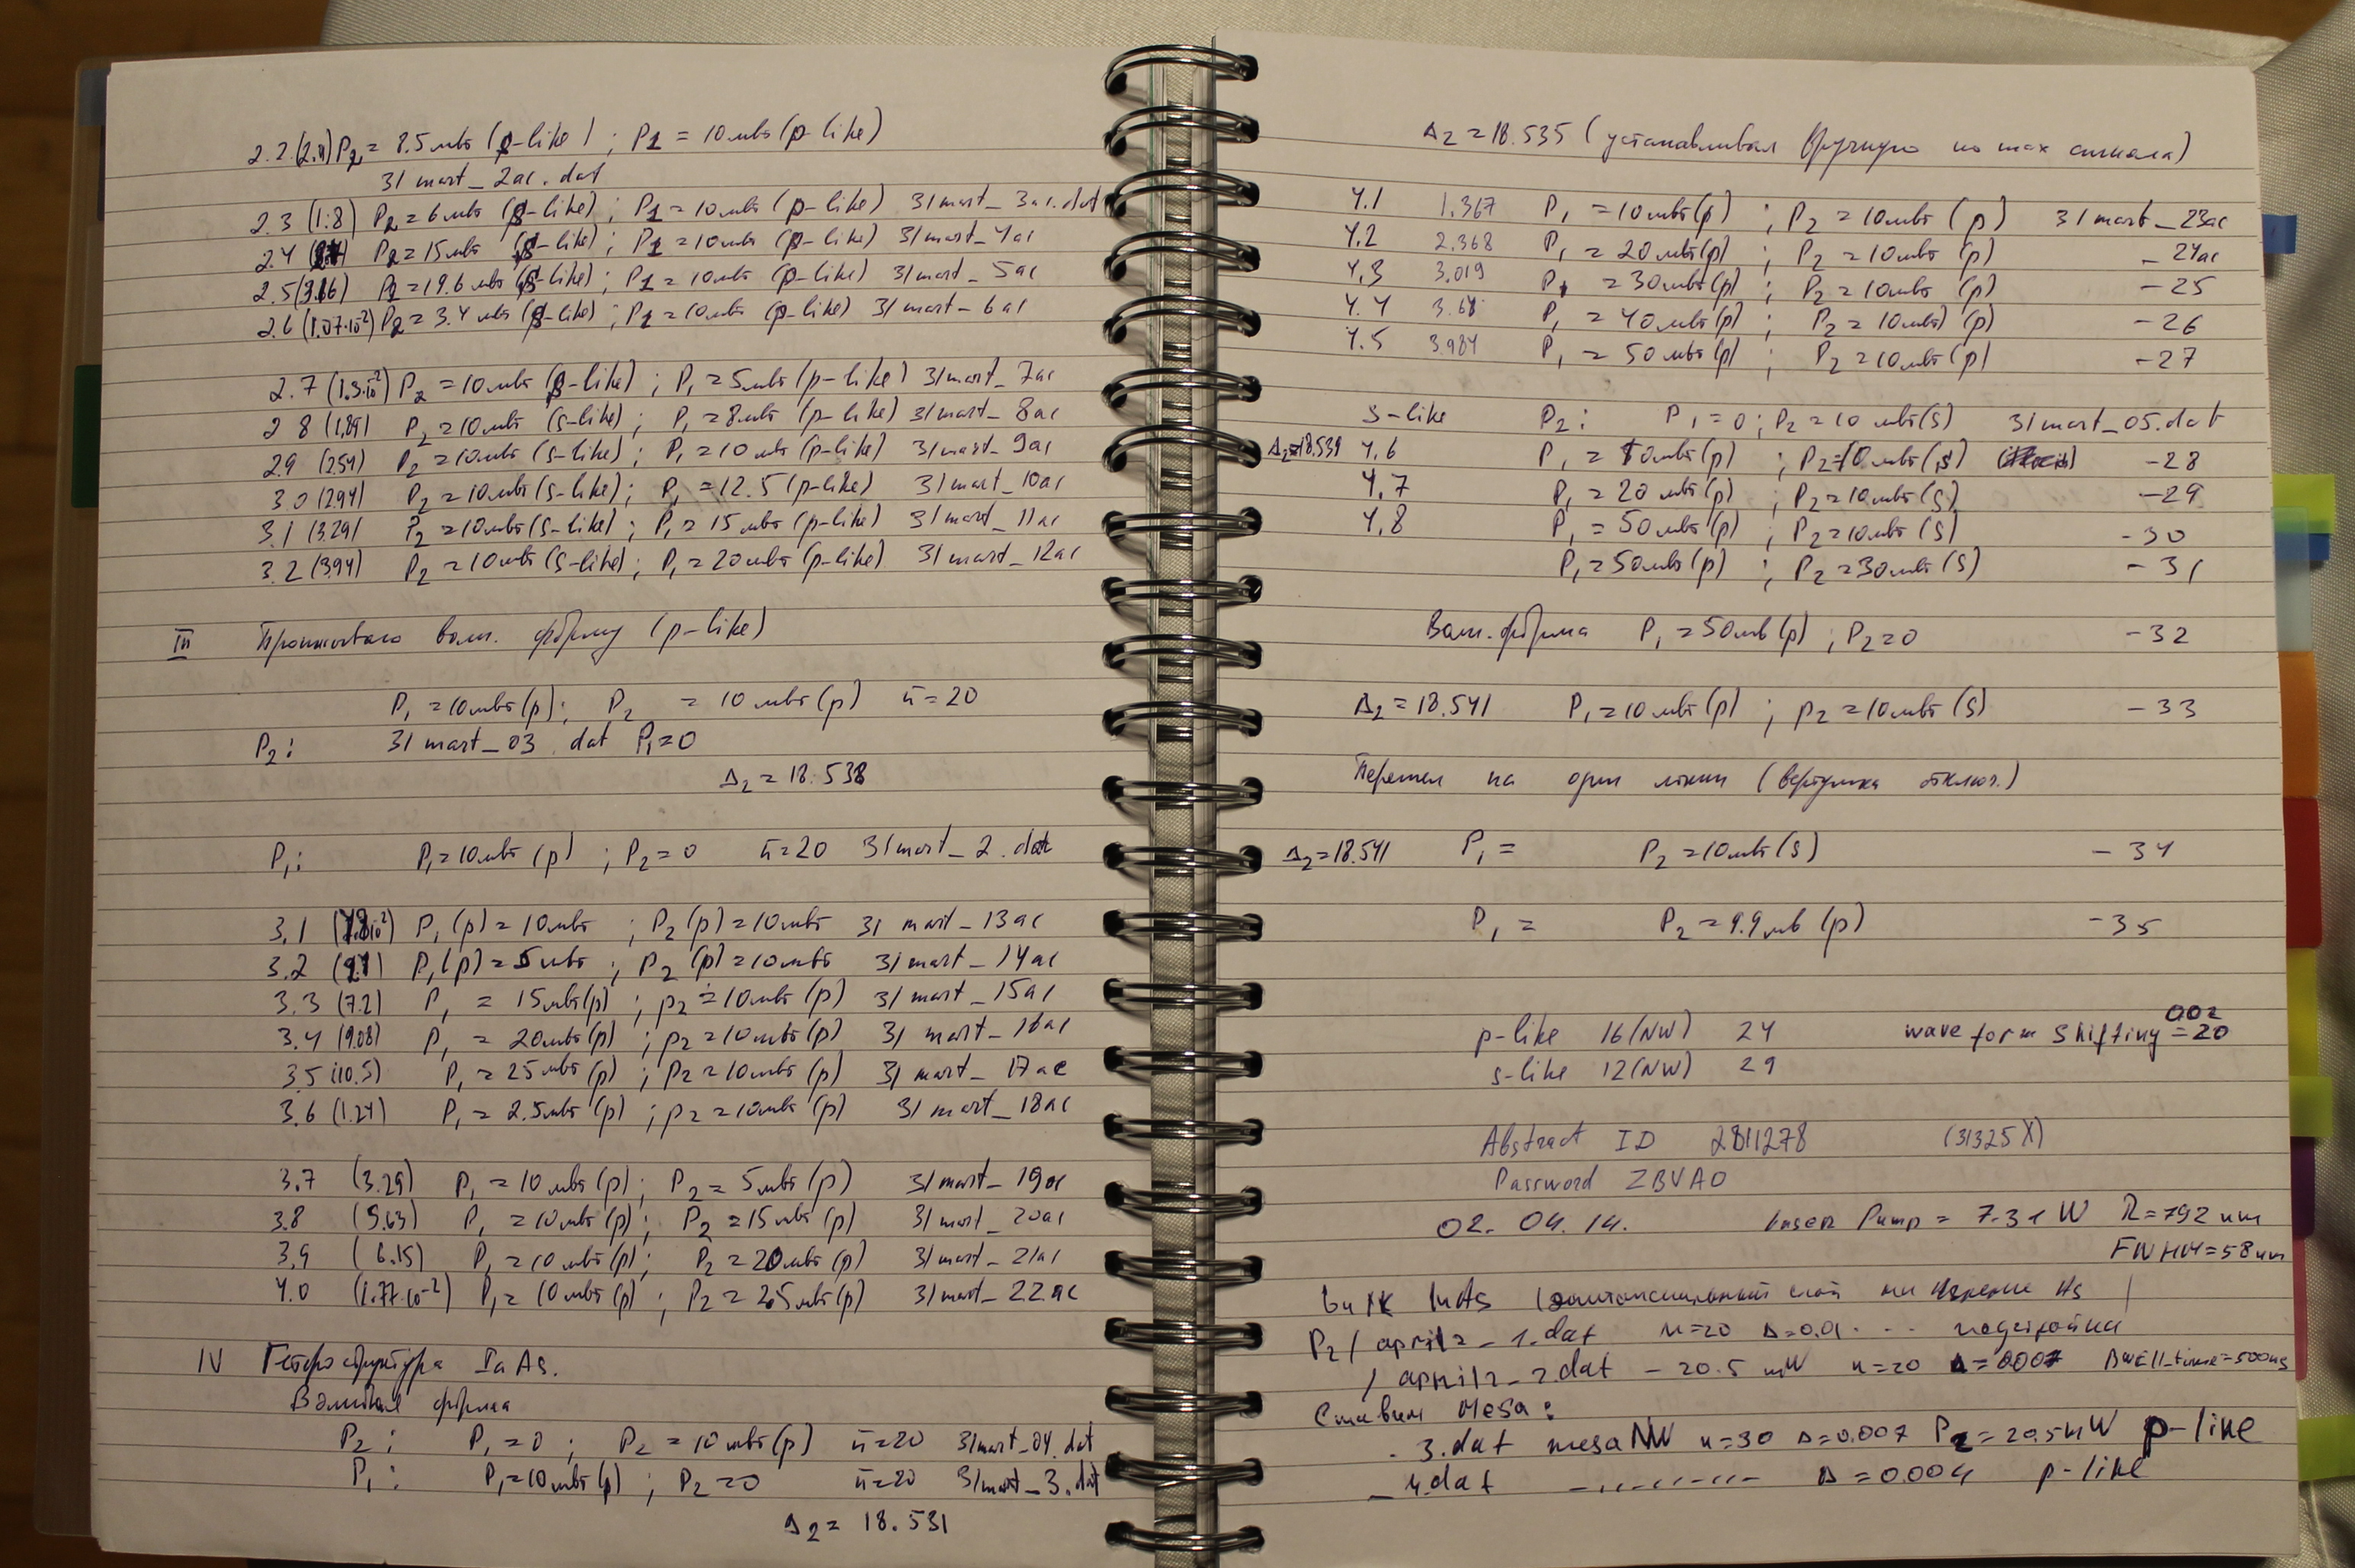 2.2 (2.11) P2 = 8.5 мвт (p-like) ; P1 = 10 мвт (p-like)
31 mart_2ac.dat
2.3 (1.8) P2 = 6 мвт (s-like) ; P1 = 10 мвт (p-like) 31 mart_3ac.dat
2.4 P2 = 15 мвт (s-like) ; P1 = 10 мвт (p-like) 31 mart_4ac
2.5 (3.16) P2 = 19.6 мвт (s-like) ; P1 = 10 мвт (p-like) 31 mart_5ac
2.6 (1.07·10⁻²) P2 = 3.4 мвт (s-like) ; P1 = 10 мвт (p-like) 31 mart_6ac
2.7 (1.3·10⁻²) P2 = 10 мвт (s-like) ; P1 = 5 мвт (p-like) 31 mart_7ac
2 8 (1.89) P2 = 10 мвт (s-like) ; P1 = 8 мвт (p-like) 31 mart_8ac
2.9 (2.54) P2 = 10 мвт (s-like) ; P1 = 10 мвт (p-like) 31 mart_9ac
3.0 (2.94) P2 = 10 мвт (s-like) ; P1 = 12.5 (p-like) 31 mart_10ac
3.1 (3.29) P2 = 10 мвт (s-like) ; P1 = 15 мвт (p-like) 31 mart_11ac
3.2 (3.94) P2 = 10 мвт (s-like) ; P1 = 20 мвт (p-like) 31 mart_12ac
III волн. форму (p-like)
P1 = 10 мвт (p) ; P2 = 10 мвт (p) n = 20
P2: 31 mart_03.dat P1 = 0
Δ2 = 18.538
P1: P1 = 10 мвт (p) ; P2 = 0 n = 20 31 mart_2.dat
3.1 P1 (p) = 10 мвт ; P2 (p) = 10 мвт 31 mart_13ac
3.2 P1 (p) = 5 мвт ; P2 (p) = 10 мвт 31 mart_14ac
3.3 (7.2) P1 = 15 мвт (p) ; P2 = 10 мвт (p) 31 mart_15ac
3.4 (9.08) P1 = 20 мвт (p) ; P2 = 10 мвт (p) 31 mart_16ac
3.5 (10.5) P1 = 25 мвт (p) ; P2 = 10 мвт (p) 31 mart_17ac
3.6 (1.24) P1 = 2.5 мвт (p) ; P2 = 10 мвт (p) 31 mart_18ac
3.7 (3.29) P1 = 10 мвт (p) ; P2 = 5 мвт (p) 31 mart_19ac
3.8 (5.63) P1 = 10 мвт (p) ; P2 = 15 мвт (p) 31 mart_20ac
3.9 (6.15) P1 = 10 мвт (p) ; P2 = 20 мвт (p) 31 mart_21ac
4.0 (1.77·10⁻²) P1 = 10 мвт (p) ; P2 = 2.5 мвт (p) 31 mart_22ac
IV Гетероструктура InAs.
Волновая форма
P2: P1 = 0 ; P2 = 10 мвт (p) n = 20 31 mart_04.dat
P1: P1 = 10 мвт (p) ; P2 = 0 n = 20 31 mart_3.dat
Δ2 = 18.531
Δ2 = 18.535 (устанавливал вручную по max сигнала)
4.1 1.367 P1 = 10 мвт (p) ; P2 = 10 мвт (p) 31 mart_23ac
4.2 2.368 P1 = 20 мвт (p) ; P2 = 10 мвт (p) _24ac
4.3 3.019 P1 = 30 мвт (p) ; P2 = 10 мвт (p) -25
4.4 3.68 P1 = 40 мвт (p) ; P2 = 10 мвт (p) -26
4.5 3.984 P1 = 50 мвт (p) ; P2 = 10 мвт (p) -27
S-like P2: P1 = 0 ; P2 = 10 мвт (s) 31 mart_05.dat
Δ2 = 18.539 4.6 P1 = 10 мвт (p) ; P2 = 10 мвт (s) -28
4.7 P1 = 20 мвт (p) ; P2 = 10 мвт (s) -29
4.8 P1 = 50 мвт (p) ; P2 = 10 мвт (s) -30
P1 = 50 мвт (p) ; P2 = 30 мвт (s) -31
Волн. форма P1 = 50 мв (p) ; P2 = 0 -32
Δ2 = 18.541 P1 = 10 мвт (p) ; P2 = 10 мвт (s) -33
Перешел на один (вертушка отключ.)
Δ2 = 18.541 P1 = P2 = 10 мвт (s) -34
P1 = P2 = 9.9 мв (p) -35
p-like 16(NW) 24 wave form shifting = 20
002
s-like 12(NW) 29
Abstract ID 2811278 (31325X)
Password ZBVAO
02. 04. 14. Laser Pump = 7.31 W λ = 792 nm
FWHM = 58 nm
InAs (эпитаксиальный слой
P2 / april2_1.dat n=20 Δ=0.01 ... подстройки
/ april2_2.dat - 20.5 mW n=20 Δ=0.007 Dwell_time=500ms
Ставим Mesa:
- 3.dat mesa NW n=30 Δ=0.007 P2 = 20.5 mW p-like
_ 4.dat -.-.-.-.-.- Δ=0.004 p-like